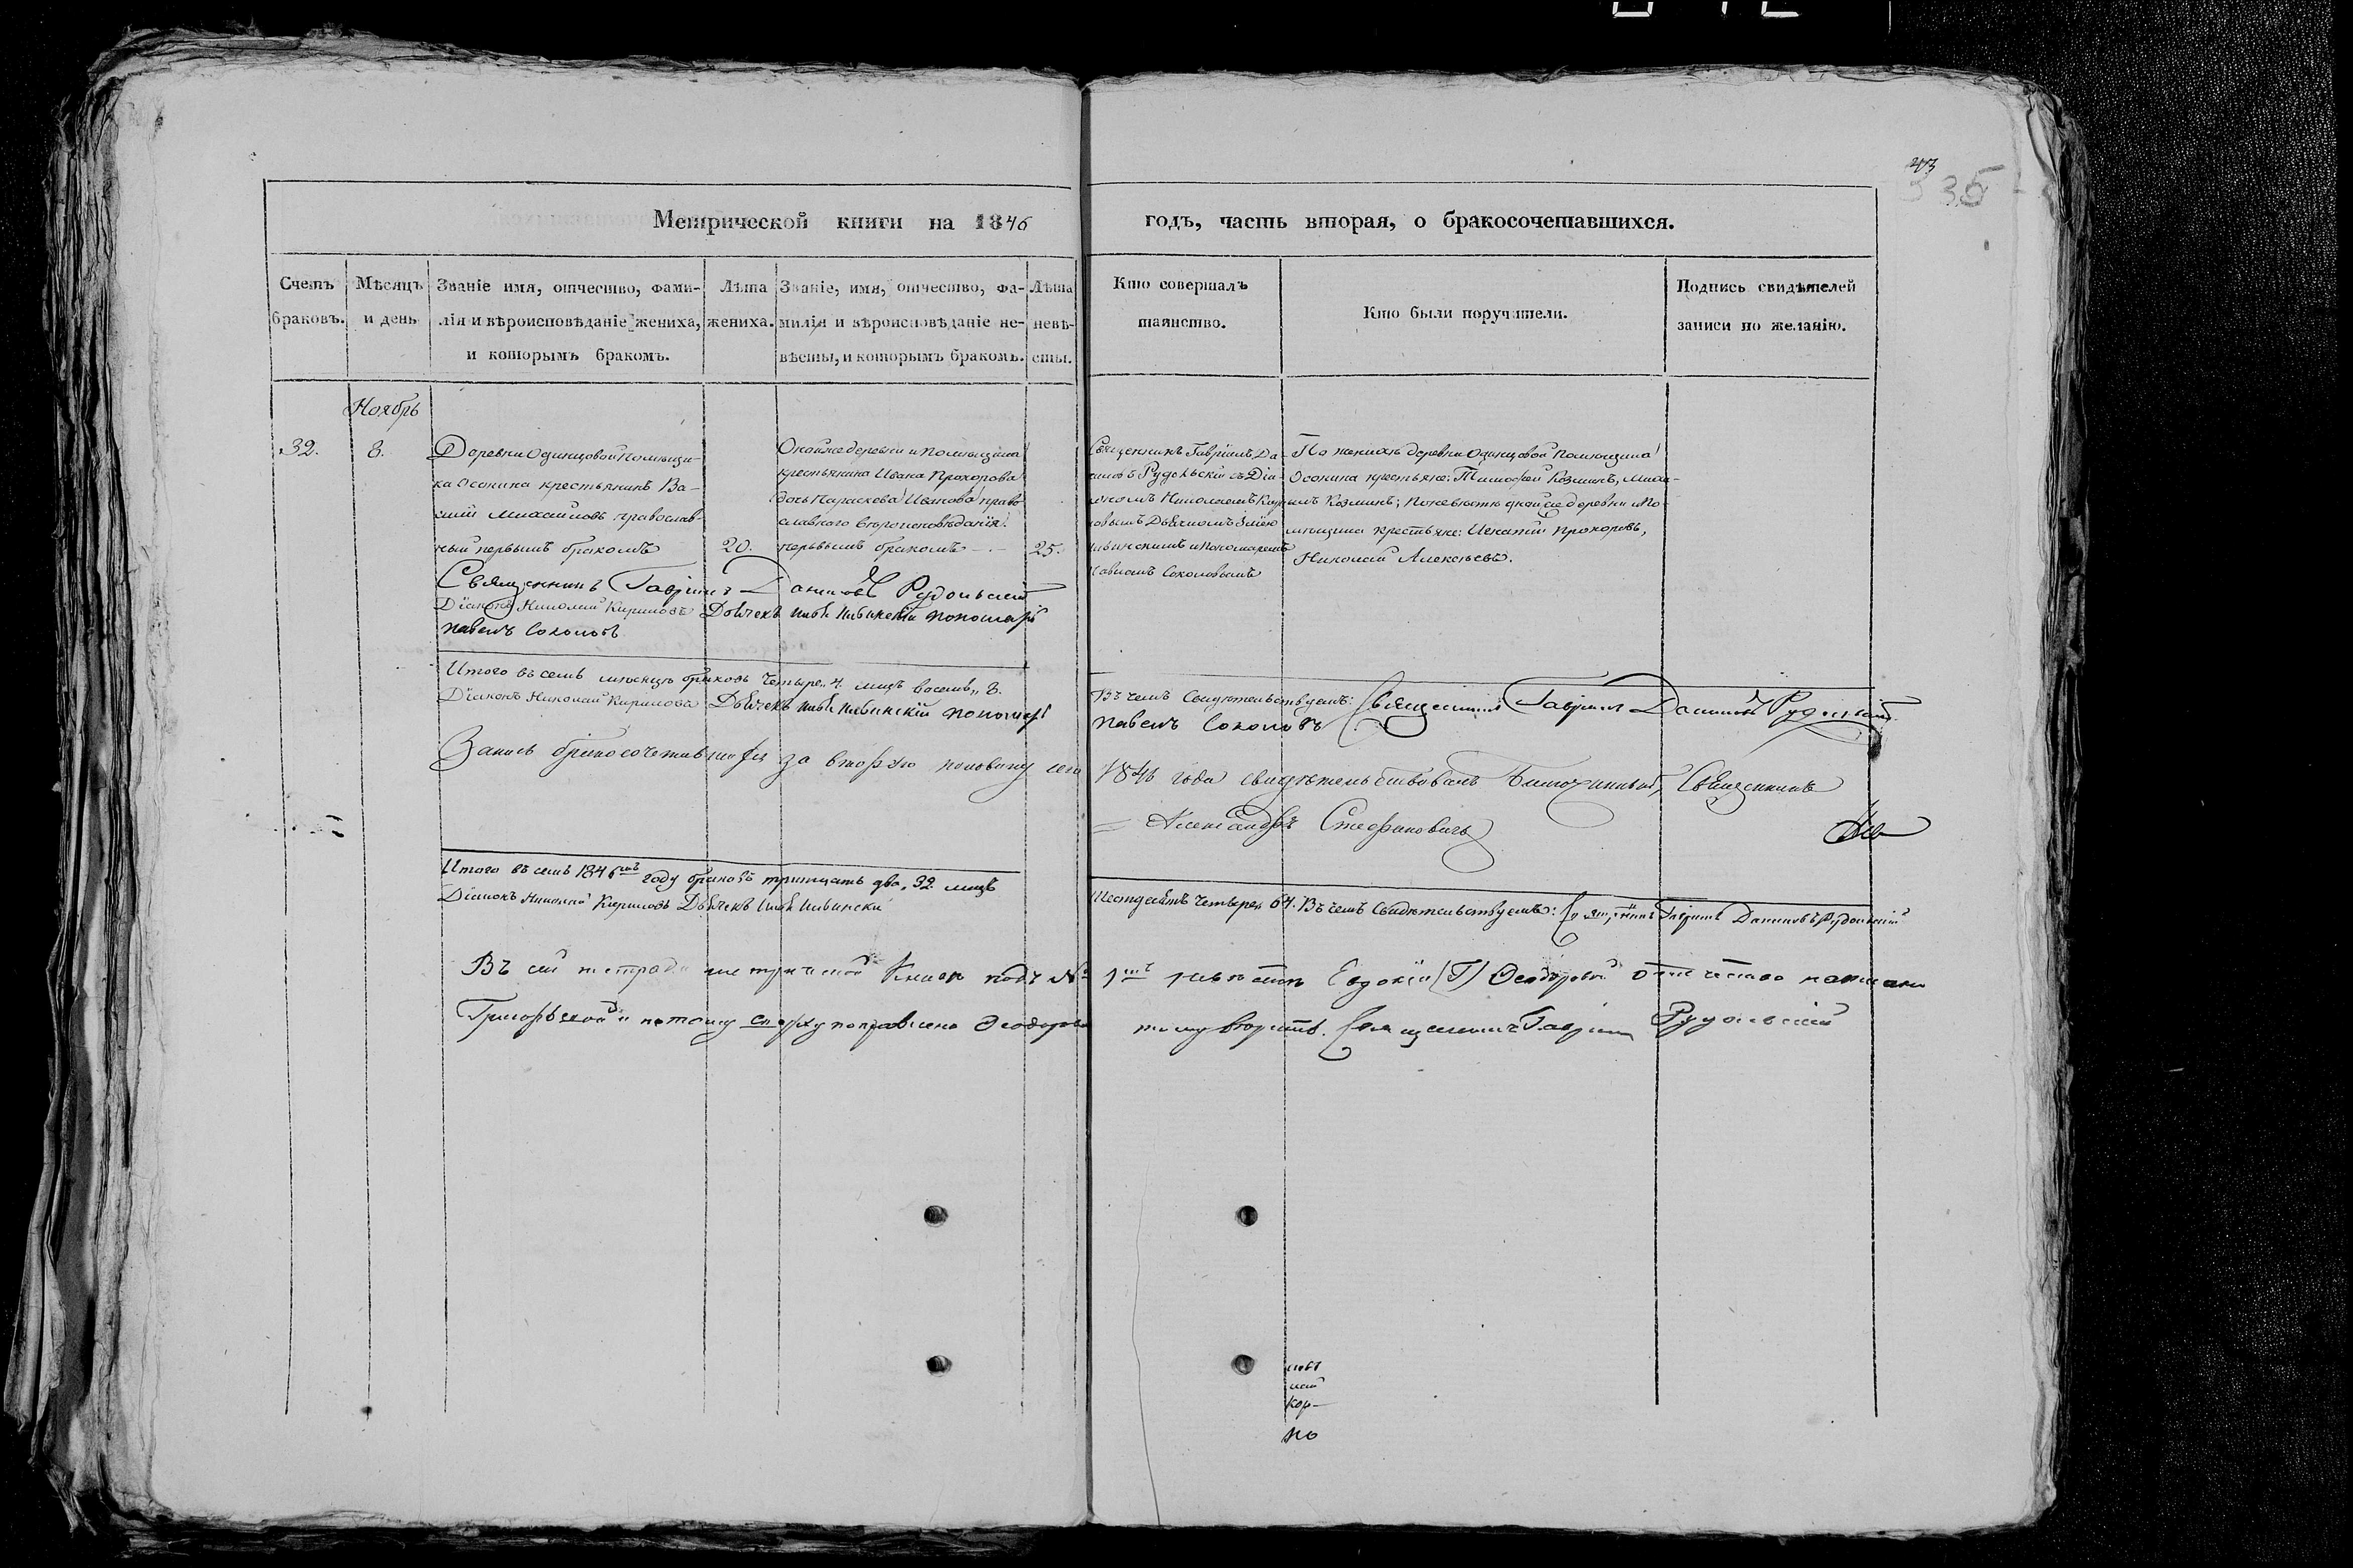 Метрической книги на 1846 годъ, часть вторая, о бракосочетавшихся.
Счетъ браковъ.
Мѣсяцъ и день
Званіе имя, отчество, фамилія и вѣроисповѣданіе жениха, и которымъ бракомъ.
Лѣта жениха.
Званіе, имя, отчество, фамилія и вѣроисповѣданіе невѣсты, и которымъ бракомъ.
Лѣта невѣсты.
Кто совершалъ таинство.
Кто были поручители.
Подпись свидѣтелей записи по желанію.
Ноябрь
32.
8.
Деревни Одинцовой помѣщи-
ка Осокина крестьянинъ Ва-
силій Михайловъ православ-
ный первымъ бракомъ
20.
Онойже деревни и помѣщика
крестьянина Ивана Прохорова
дочь Параскева Иванова право-
славного вѣроисповѣданія
первымъ бракомъ
25.
Священникъ Гавріилъ Да-
ниловъ Рудольскій съ Діа-
кономъ Николаемъ Кири-
ловымъ Дьячкомъ Іліею
Ильвинскимъ и Пономаремъ
Павломъ Соколовымъ
По женихѣ деревни Одинцовой помѣщика
Осокина крестьяне: Тимофей Козминъ, Миха-
илъ Козминъ; по невѣстѣ онойже деревни и по-
мѣщика крестьяне: Игнатій Прохоровъ,
Николай Алексѣевъ.
Священникъ Гавріилъ Даниловъ Рудольскій
Діаконъ Николай Кириловъ Дьячекъ Илья Ильвинскій пономарь
павелъ Соколовъ
Итого въ семъ мѣсяцѣ браковъ четыре „ 4. лицъ восемь „ 8.
Въ чемъ свидѣтельствуемъ: Священникъ Гавріилъ Даниловъ Рудольскій
Діаконъ Николай Кириловъ Дьячекъ Илья Ильвинскій пономарь
павелъ Соколовъ
Запись бракосочетавшихся за вторую половину сего 1846 года свидѣтельствовалъ Благочинный, Священникъ
Александръ Стефановичъ
Итого въ семъ 1846мъ году браковъ тритцать два, 32 лицъ
шестдесятъ четыре, 64. Въ чемъ свидѣтельствуемъ: Священникъ Гавріилъ Даниловъ Рудольскій
Діаконъ Николай Кириловъ Дьячекъ Илья Ильвински
Въ сей тетради метрической книги подъ № 1мъ невѣстѣ Евдокіи (Г) Ѳеодоровой отчество написано
Григорьевой и потому сверху поправлено Ѳеодорова тому вѣрить. Священникъ Гавріилъ Рудольскій
кор-
но